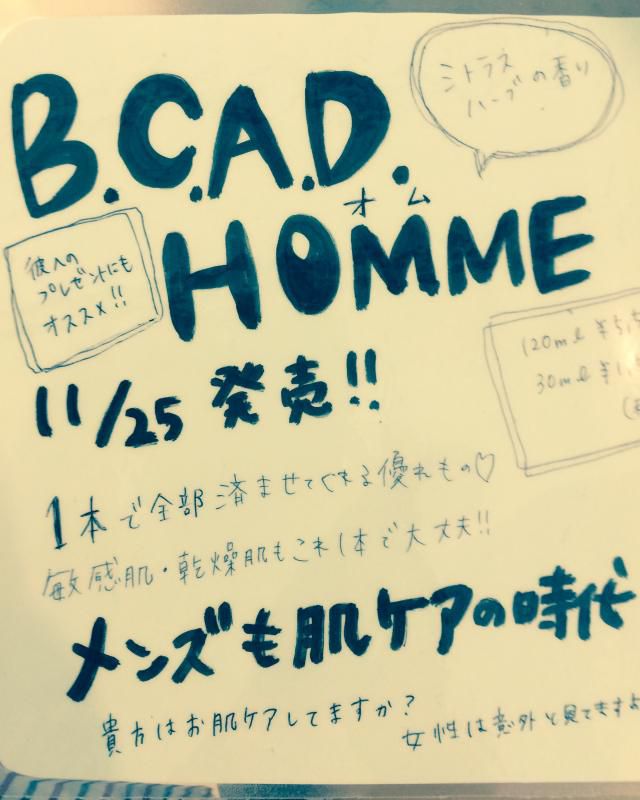 B.C.A.D.
シトラス
ハーブの香り
オム
HOMME
彼への
プレゼントにも
オススメ!!
120ml ¥5,5
30ml ¥1,
11/25 発売!!
1本で全部済ませてくれる優れもの♡
敏感肌・乾燥肌もこれ1本で大丈夫!!
メンズも肌ケアの時代
貴方はお肌ケアしてますか?
女性は意外と見てますよ